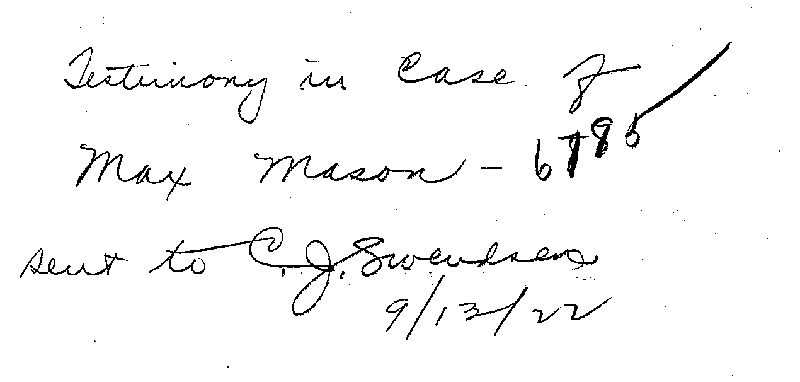 Testimony in Case of
Max Mason - 6785
sent to C. J. Swendsen
9/13/22